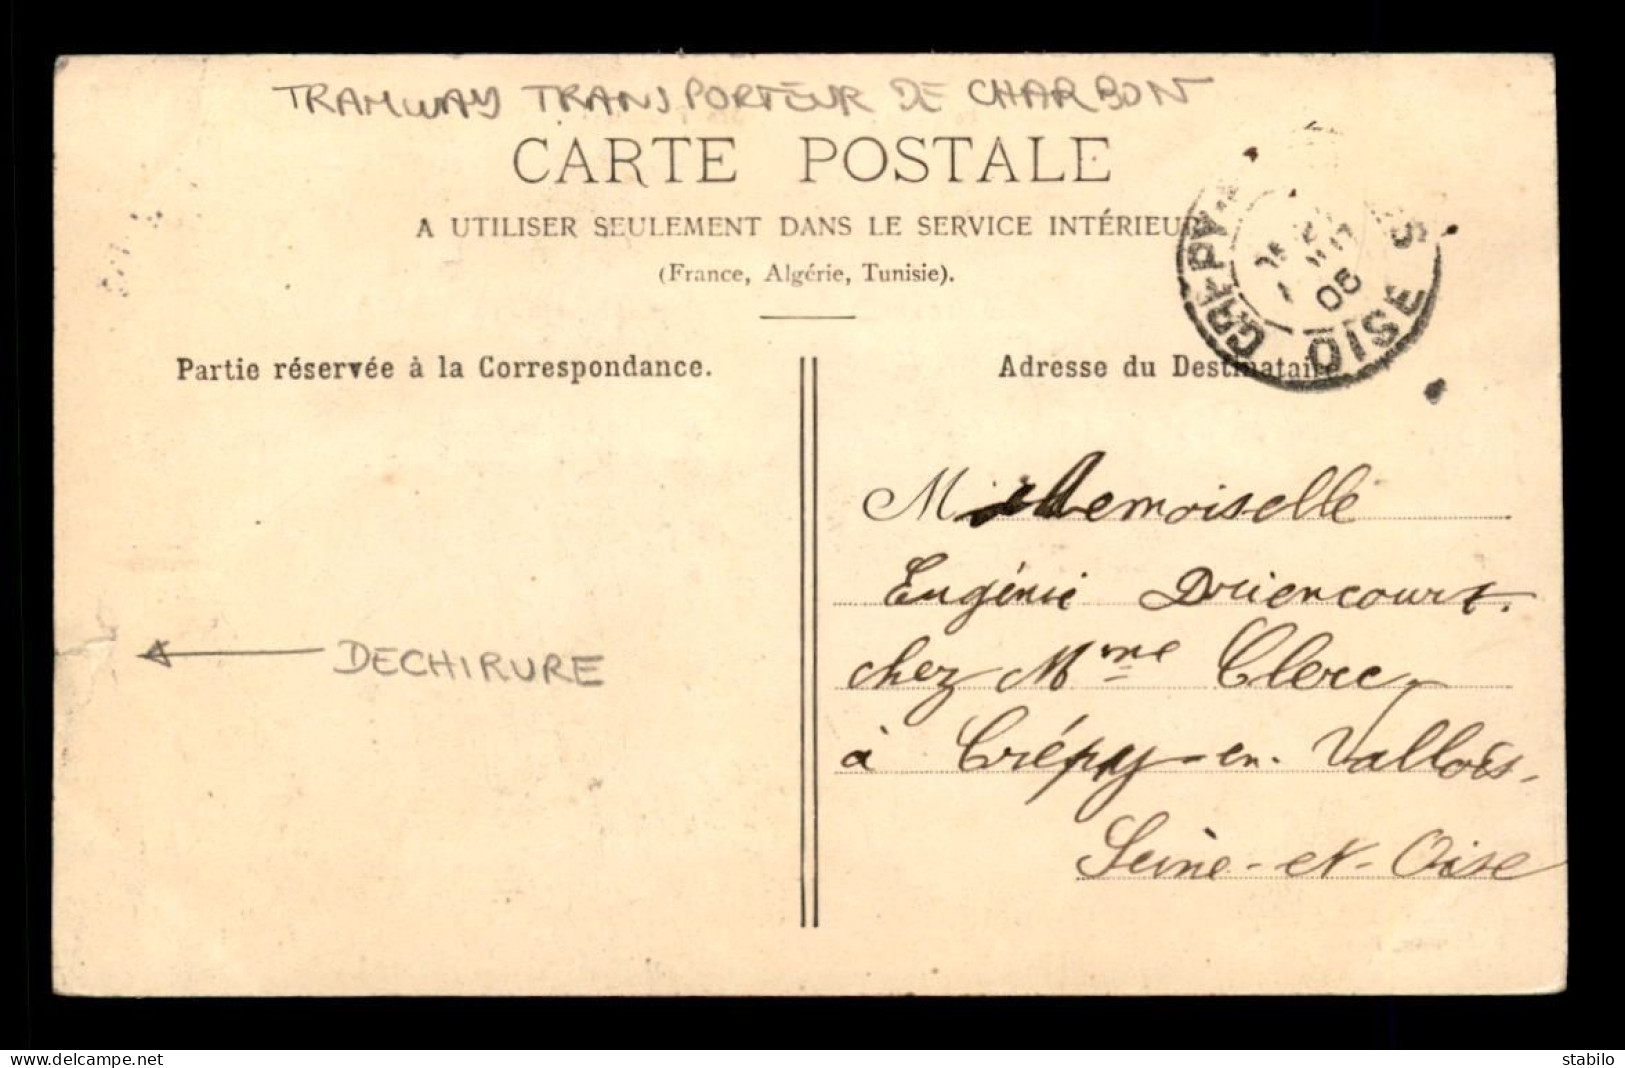 TRAMWAY TRANSPORTEUR DE CHARBON
CARTE POSTALE
A UTILISER SEULEMENT DANS LE SERVICE INTÉRIEUR
(France, Algérie, Tunisie).
CRÉPY
06
OISE
Partie réservée à la Correspondance.
Adresse du Destinataire
Mademoiselle
Eugénie Driencourt.
chez Mme Clerc,
à Crépy-en-Vallois-
Seine-et-Oise
DECHIRURE
delcampe.net
stabilo